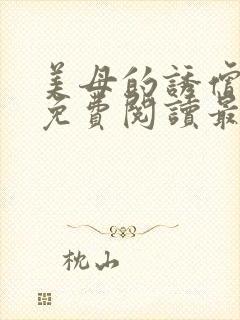 美母的誘
免費閱讀最
枕山